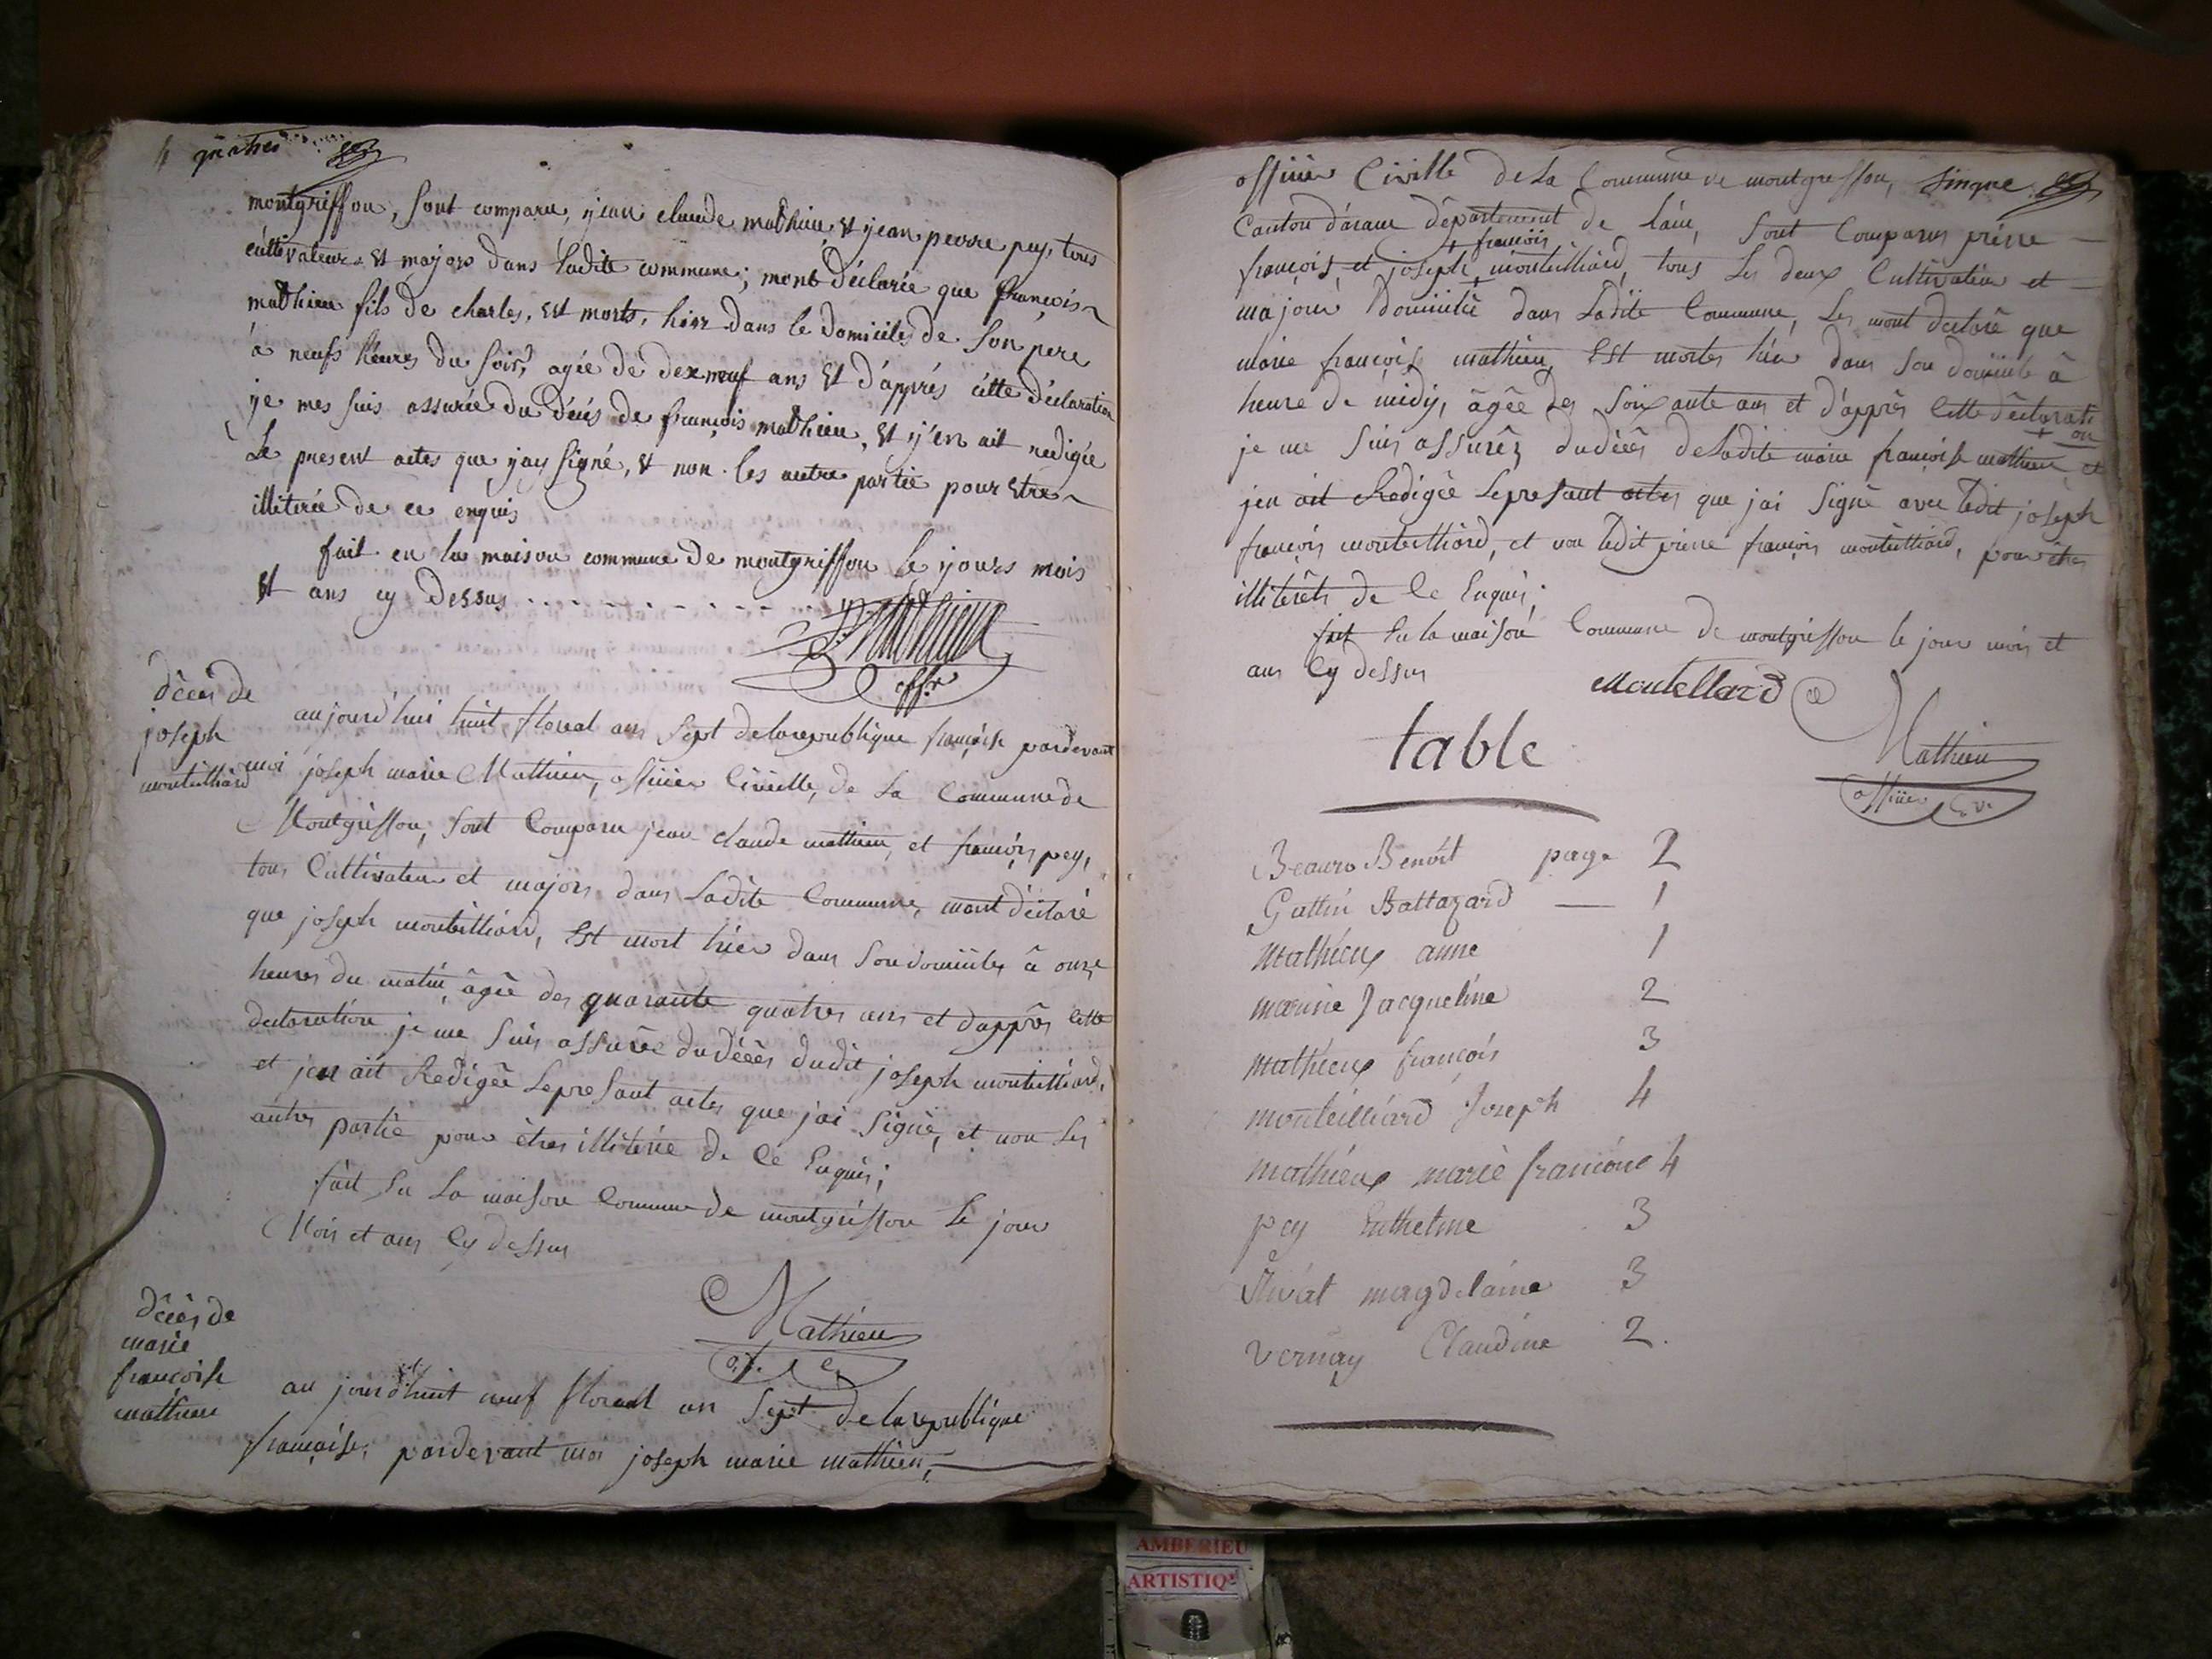 4 quatres
montgriffon, sont comparu, jean claude mathieu, et jean pierre pey, tous
cultivateur et majors dans ladite commune; mont déclarée que françois
mathieu fils de charles, est morts, hier dans le domiciles de son pere
à neufs heures du soir, agée de dexneuf ans et d'apprés cette déclaration
je mes suis assurée du décés de françois mathieu, et j'en ait redigée
Le present actes que jay signé, et non les autre partie pour etre
illiterée de ce enquis
fait en la maison commune de montgriffon le jours mois
et ans cy dessus
Mathieu
offr
décès de
joseph
monteilliard
aujourd'hui huit floreal an sept de la republique françoise pardevant
moi joseph marie Mathieu, officier Civille, de La Commune de
Montgriffon, sont Comparu jean claude mathieu, et françois pey,
tous Cultivateur et majors dans Ladite Commune, mont déclaré
que joseph monteilliard, Est mort hier dans son domicile à onze
heures du matin, âgée des quarante quatres ans et dapprès Cette
declaration je me suis assurée du décès dudit joseph monteilliard,
et jen ait Redigée Le presant actes que jai signé, et non Les
autres partie pour êtres illiterée de Ce Enquis;
fait En La maison Commune de montgriffon Le jour
Mois et ans Cy dessus
Mathieu
décès de
marie
françoise
mathieu
au jourdhuit neuf floreal an sept de la republique
française, pardevant moi joseph marie mathieu,
officier Civille de La Commune de montgriffon, sinque
Canton d'aranc département de Lain, sont Comparus pierre
françois
françois, et joseph monteilliard, tous Les deux Cultivateur et
majour domicilié dans Ladite Commune, Les mont declaré que
marie françoise mathieu, Est mortes hier dans son domicile à
heure de midy, âgée des soixante ans et d'apprès Cette déclarati
on
je me suis assurés du décès de Ladite marie françoise mathieu et
jen ait Redigée Le presant actes que jai signé avec Ledit joseph
françois monteilliard, et non Ledit pierre françois monteilliard, pour êtres
illiterêts de Ce Enquis;
fait En la maison Commune de montgriffon le jour mois et
ans Cy dessus
Montellard
Mathieu
officier Civ.
table
Benoit page 2
Guttin Baltazard — 1
Mathieux anne 1
Jacqueline 2
Mathieux françois 3
monteilliard Joseph 4
mathieux marie francoise 4
pey 3
magdelaine 3
vernay Claudine 2.
AMBERIEU
ARTISTIQ